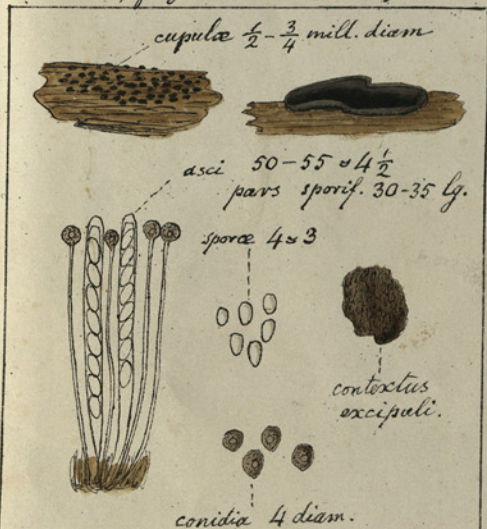 cupulæ 1/2 - 3/4 mill. diam
asci 50-55 ≈ 4 1/2
pars sporif. 30-35 lg.
sporæ 4 ≈ 3
contextus
excipuli.
conidia 4 diam.